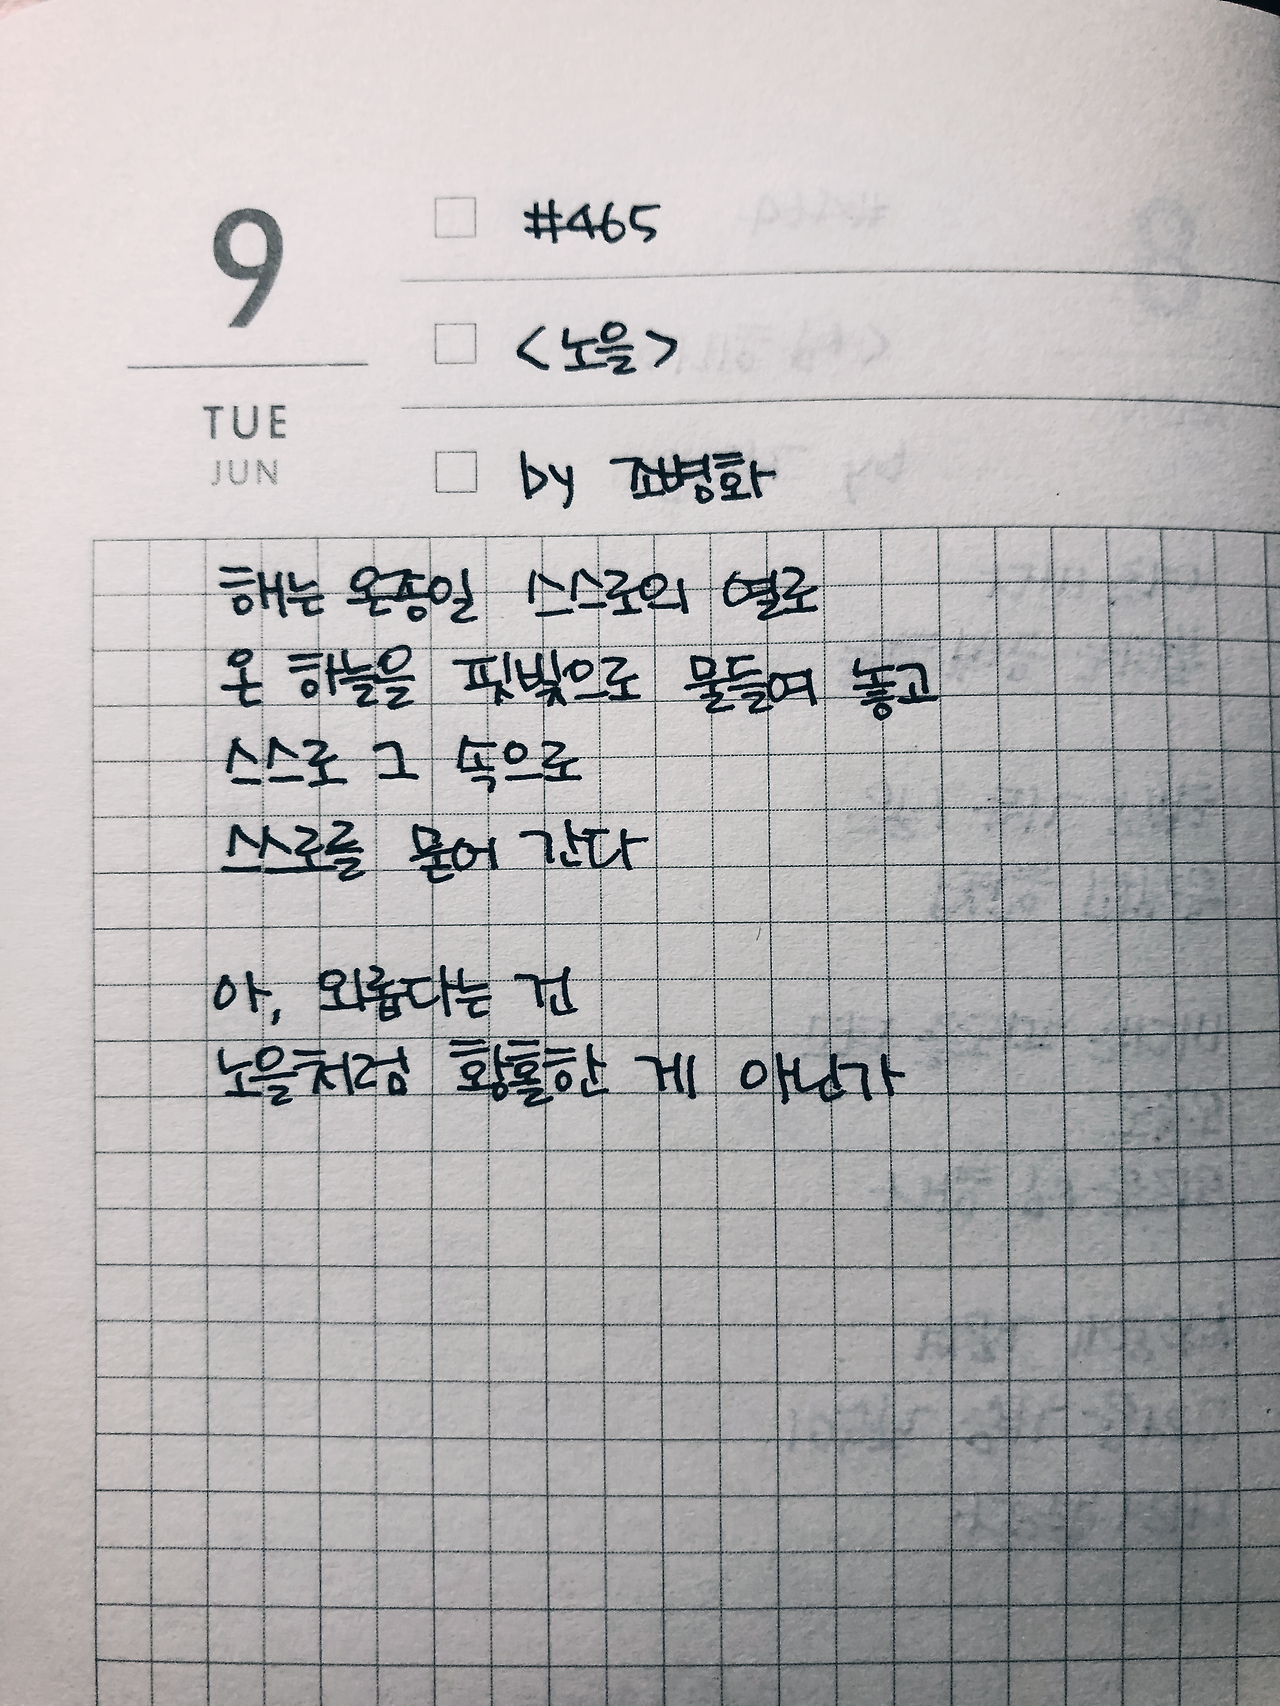 9
TUE
JUN
#465
<노을>
by 조병화
해는 온종일 스스로의 열로
온 하늘을 핏빛으로 물들여 놓고
스스로 그 속으로
스스로를 묻어 간다
아, 외롭다는 건
노을처럼 황홀한 게 아닌가